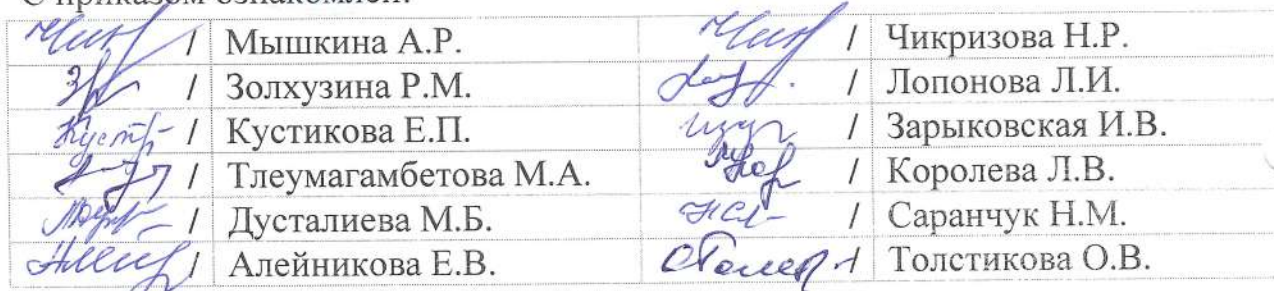 С приказом ознакомлен:
/ Мышкина А.Р. / Чикризова Н.Р.
/ Золхузина Р.М. / Лопонова Л.И.
/ Кустикова Е.П. / Зарыковская И.В.
/ Тлеумагамбетова М.А. / Королева Л.В.
/ Дусталиева М.Б. / Саранчук Н.М.
/ Алейникова Е.В. / Толстикова О.В.